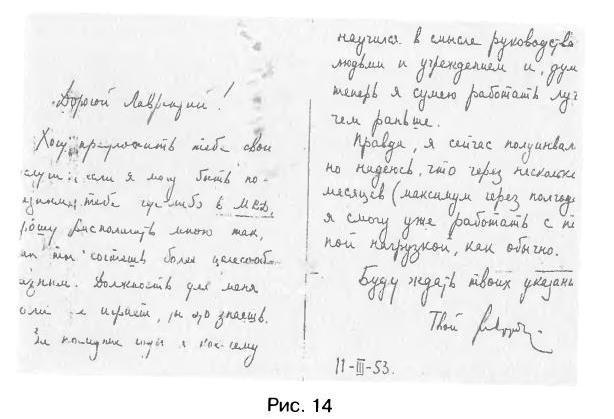 Дорогой Лаврентий!
Хочу предложить тебе свои
слуги: если я могу быть по-
лезным тебе где-либо в МВД,
рошу располагать мною так,
ак ты сочтешь более целесооб-
азным. Должность для меня
роли не играет, ты это знаешь.
За последние годы я кое-чему
научился в смысле руководства
людьми и учреждением и, дум
теперь я сумею работать луч
чем раньше.
Правда, я сейчас полуинвал
но надеюсь, что через несколько
месяцев (максимум через полгода
я смогу уже работать с по
ной нагрузкой, как обычно.
Буду ждать твоих указани
Твой
11-III-53.
Рис. 14